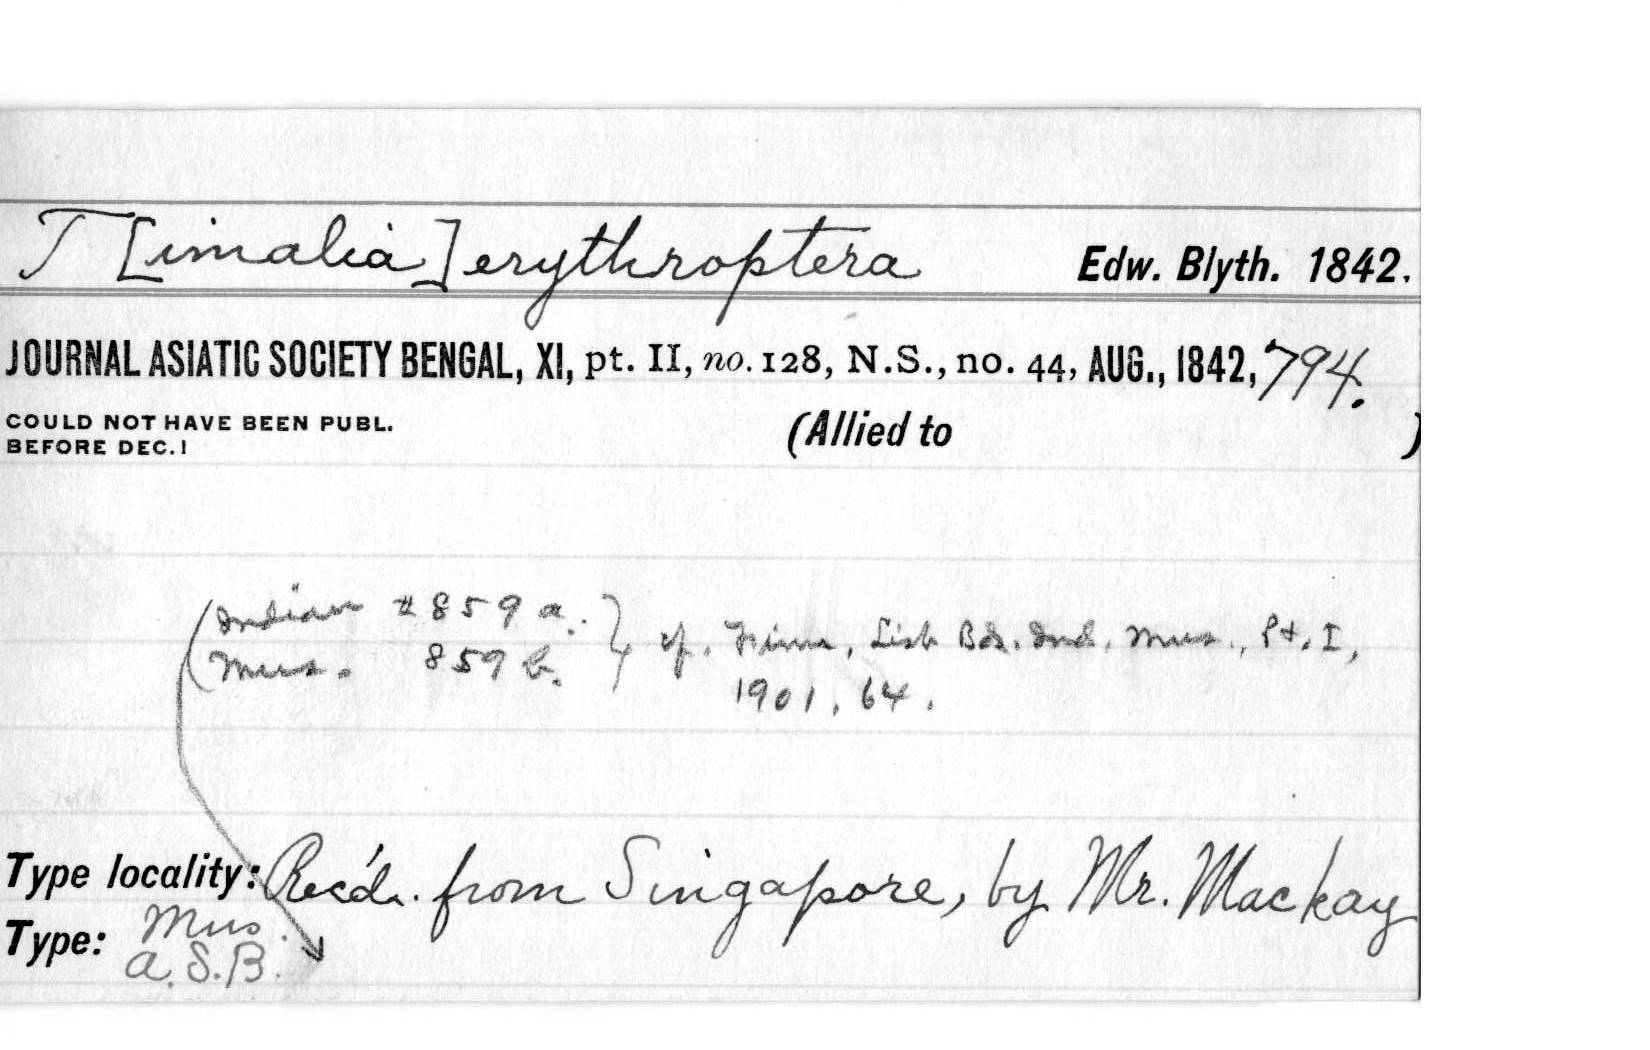 T[imalia] erythroptera Edw. Blyth. 1842.
JOURNAL ASIATIC SOCIETY BENGAL, XI, pt. II, no. 128, N.S., no. 44, AUG., 1842, 794.
COULD NOT HAVE BEEN PUBL.
BEFORE DEC. 1
(Allied to )
(Indian #859 a.
Mus. 859 b. } cf. Finn, List Bds. Ind. Mus., Pt. I,
1901, 64.
Type locality: Rec'd. from Singapore, by Mr. Mackay
Type: Mus.
A.S.B.